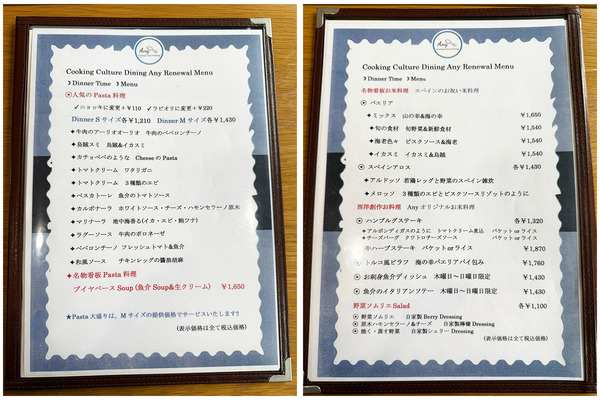 Any
Cooking Culture Dining Any Renewal Menu
☽Dinner Time ☽Menu
⦿人気のPasta料理
✓ニョッキに変更+￥110 ✓ラビオリに変更+￥220
Dinner S サイズ各￥1,210 Dinner M サイズ各￥1,430
✦牛肉のアーリオオーリオ 牛肉のペペロンチーノ
✦烏賊スミ 烏賊&イカスミ
✦カチョペペのような CheeseのPasta
✦トマトクリーム ワタリガニ
✦トマトクリーム 3種類のエビ
✦ペスカトーレ 魚介のトマトソース
✦カルボナーラ ホワイトソース・チーズ・ハモンセラーノ原木
✦マリナーラ 地中海香る(イカ・エビ・鮪ツナ)
✦ラグーソース 牛肉のボロネーゼ
✦ペペロンチーノ フレッシュトマト&魚介
✦和風ソース チキンレッグの醤油胡麻
✦名物看板Pasta料理
ブイヤベースSoup (魚介Soup&生クリーム) ￥1,650
★Pasta大盛りは、Mサイズの提供価格でサービスいたします!!
(表示価格は全て税込価格)
Any
Cooking Culture Dining Any Renewal Menu
☽Dinner Time ☽Menu
名物看板お米料理 スペインのお祝い米料理
⦿ パエリア
✦ミックス 山の幸&海の幸 ￥1,650
✦旬の食材 旬野菜&新鮮食材 ￥1,540
✦海老色々 ビスクソース&海老 ￥1,540
✦イカスミ イカスミ&烏賊 ￥1,540
⦿ スペインアロス 各￥1,430
✦アルドッソ 若鶏レッグと野菜のスペイン雑炊
✦メロッソ 3種類のエビとビスクソースリゾットのように
西洋創作お料理 Anyオリジナルお米料理
⦿ ハンブルグステーキ 各￥1,320
✦アルボンディガスのように トマトクリーム煮込 バケット or ライス
✦チーズバーグ クワトロチーズソース バケット or ライス
牛ハーブステーキ バケット or ライス ￥1,870
⦿ トルコ風ピラフ 海の幸パエリアパイ包み ￥1,760
⦿ お刺身魚介ディッシュ 木曜日～日曜日限定 ￥1,430
⦿ 魚介のイタリアンソテー 木曜日～日曜日限定 ￥1,430
野菜ソムリエSalad 各￥1,100
⦿ 野菜ソムリエ 自家製Berry Dressing
⦿ 原木ハモンセラーノ&チーズ 自家製檸檬Dressing
⦿ 焼く・蒸す野菜 自家製シェリーDressing
(表示価格は全て税込価格)